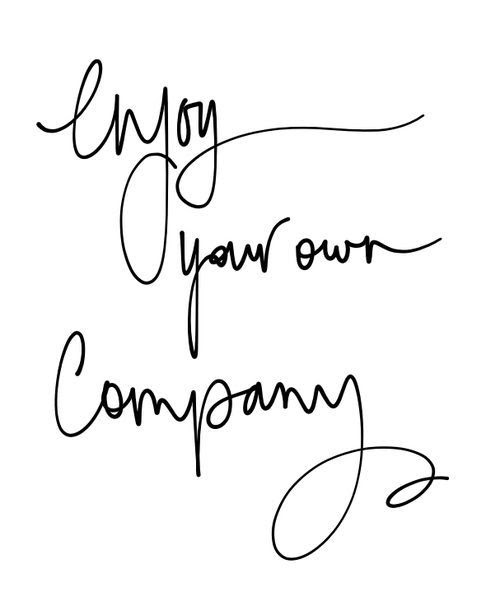 Enjoy
your own
Company